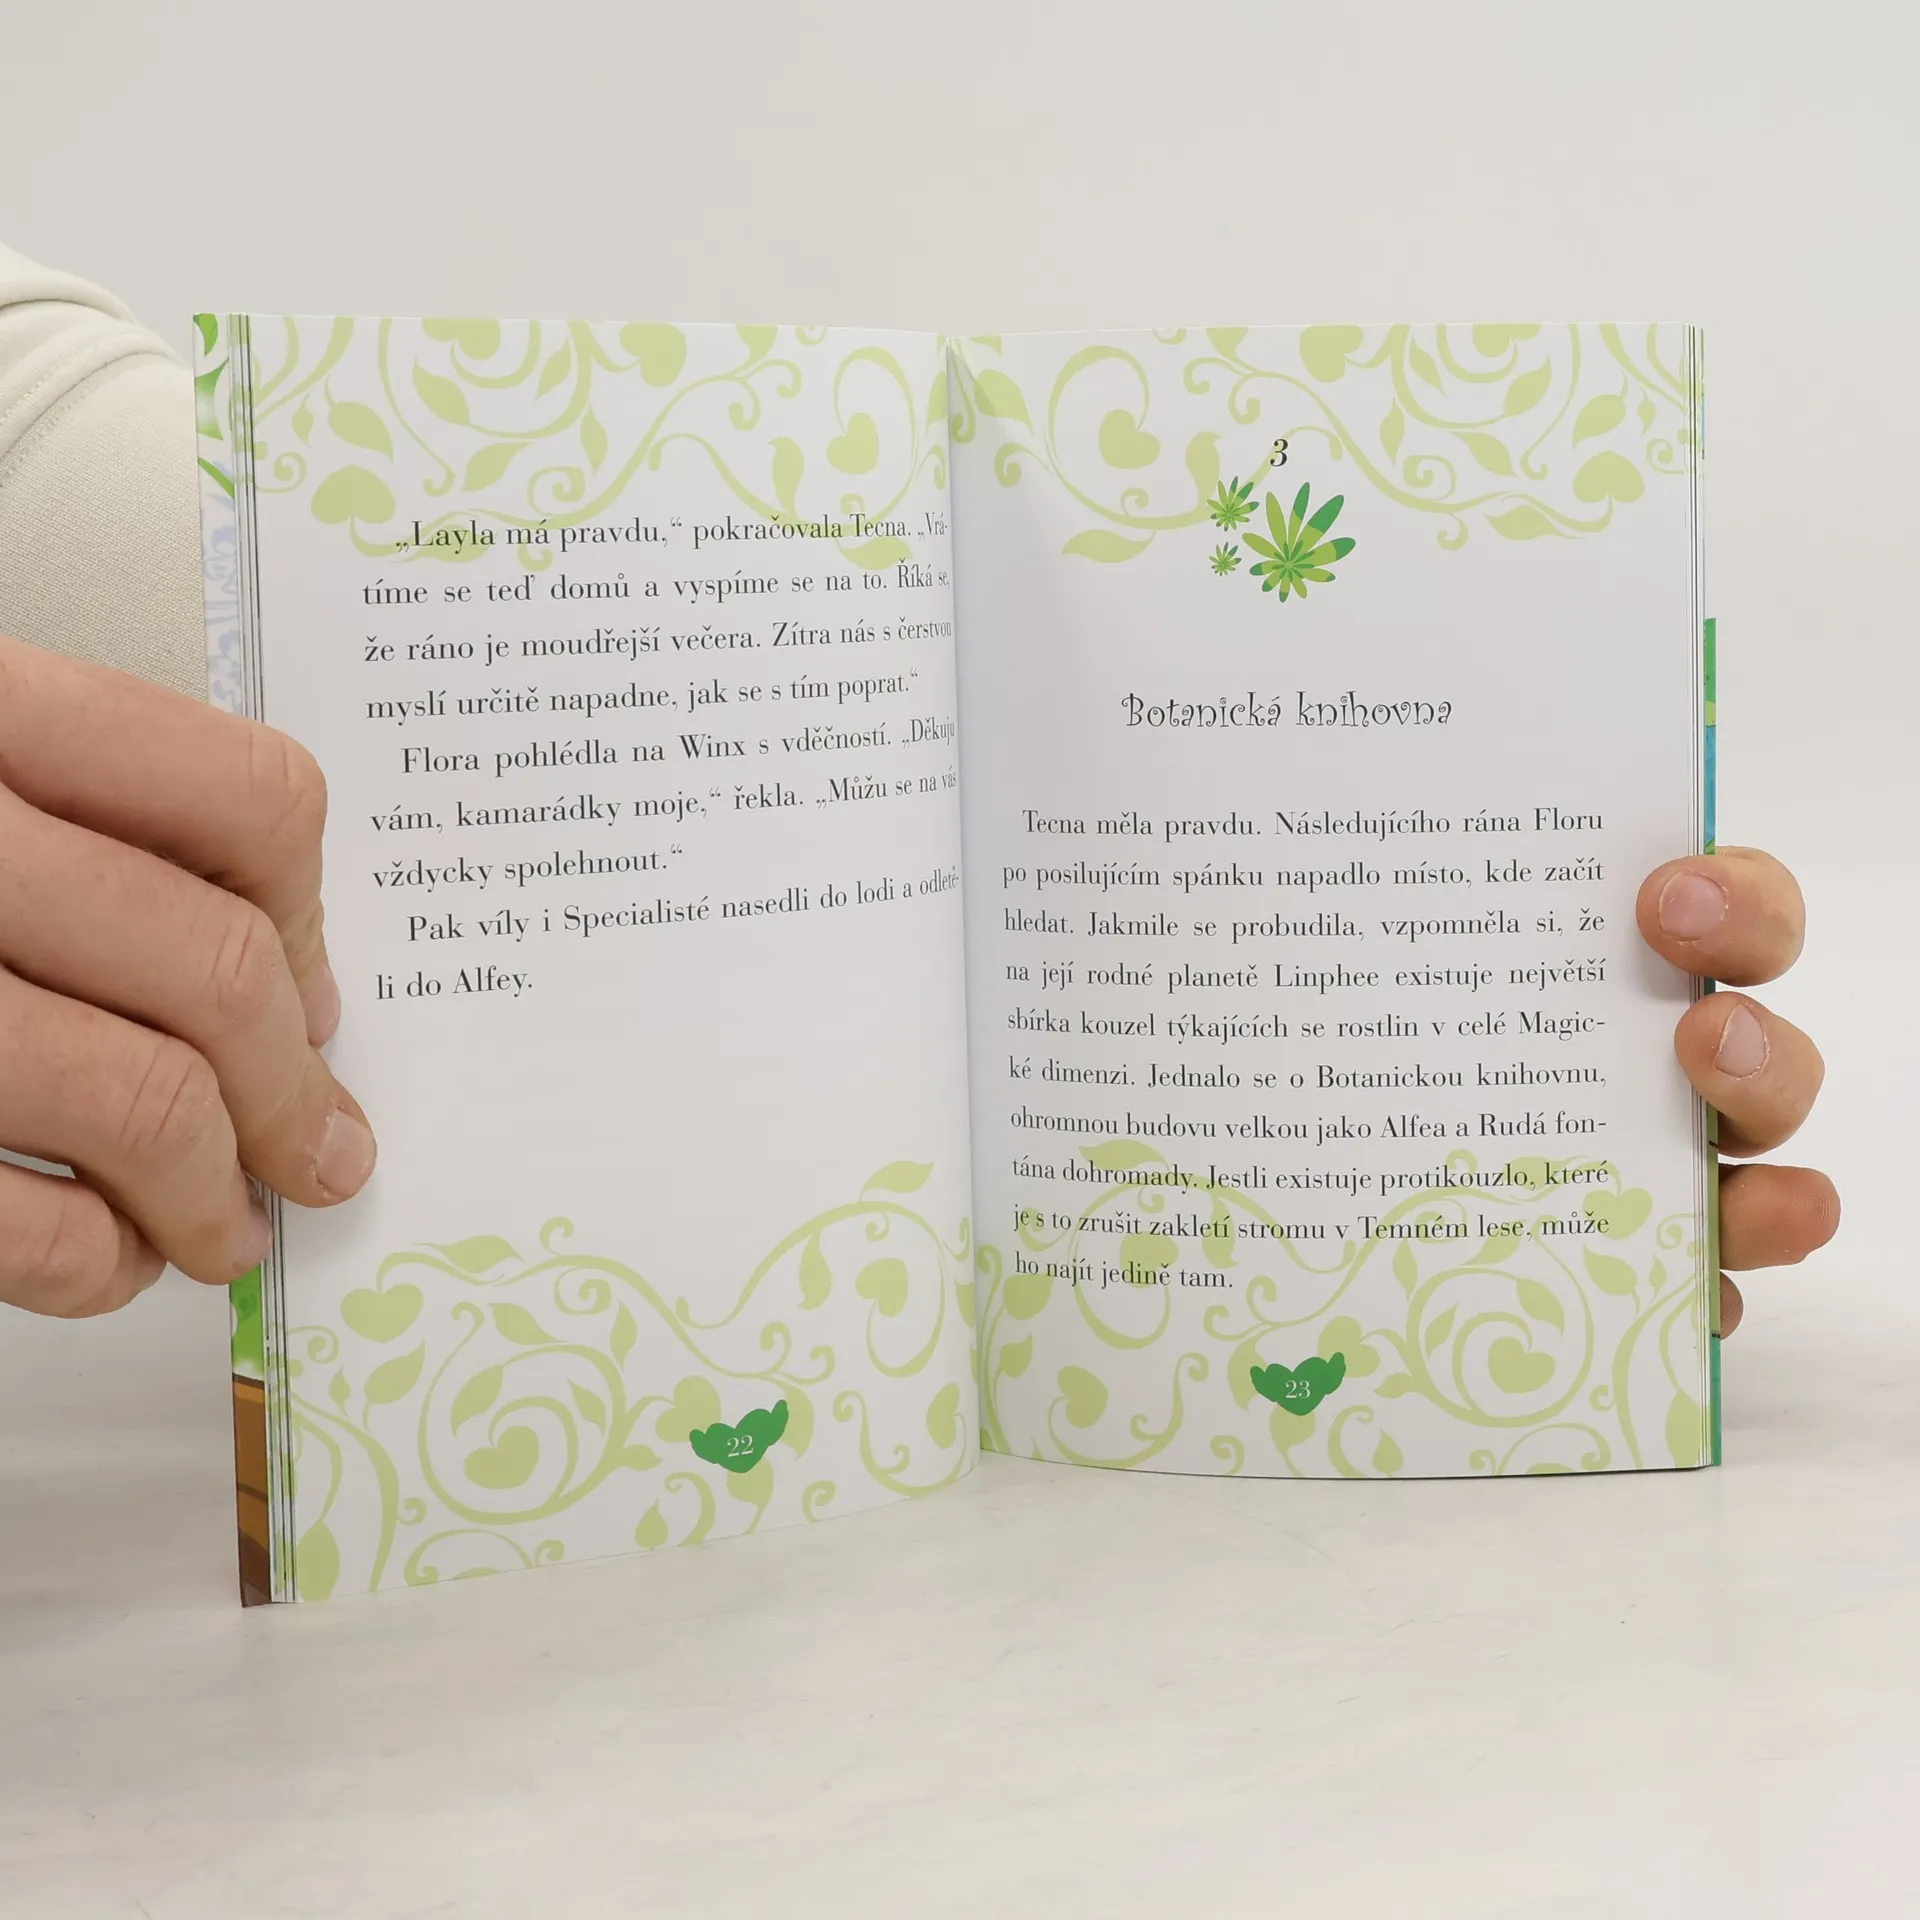 „Layla má pravdu,“ pokračovala Tecna. „Vrá-
tíme se teď domů a vyspíme se na to. Říká se,
že ráno je moudřejší večera. Zítra nás s čerstvou
myslí určitě napadne, jak se s tím poprat.“
Flora pohlédla na Winx s vděčností. „Děkuju
vám, kamarádky moje,“ řekla. „Můžu se na vás
vždycky spolehnout.“
Pak víly i Specialisté nasedli do lodi a odletě-
li do Alfey.
22
3
Botanická knihovna
Tecna měla pravdu. Následujícího rána Floru
po posilujícím spánku napadlo místo, kde začít
hledat. Jakmile se probudila, vzpomněla si, že
na její rodné planetě Linphee existuje největší
sbírka kouzel týkajících se rostlin v celé Magic-
ké dimenzi. Jednalo se o Botanickou knihovnu,
ohromnou budovu velkou jako Alfea a Rudá fon-
tána dohromady. Jestli existuje protikouzlo, které
je s to zrušit zakletí stromu v Temném lese, může
ho najít jedině tam.
23